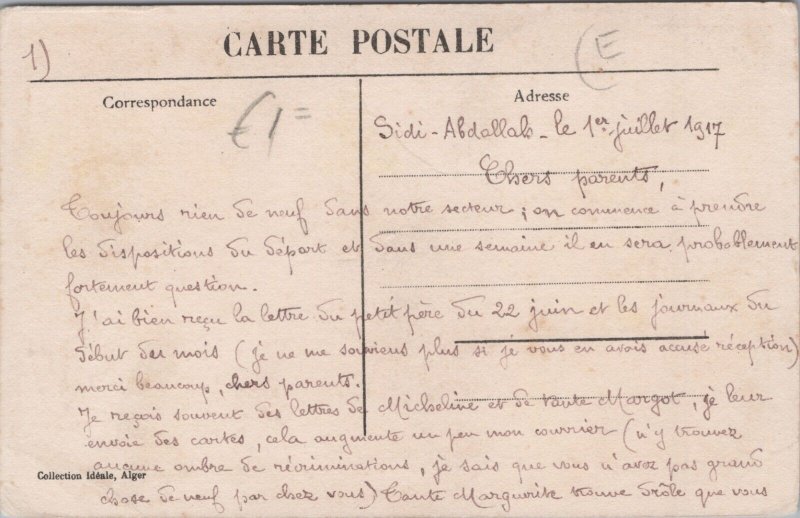 1)
CARTE POSTALE
E
Correspondance
Adresse
€1=
Sidi-Abdallah - le 1er juillet 1917
Chers parents,
Toujours rien de neuf dans notre secteur ; on commence à prendre
les dispositions du départ et dans une semaine il en sera probablement
fortement question.
J'ai bien reçu la lettre du petit père du 22 juin et les journaux du
début du mois (je ne me souviens plus si je vous en avais accusé réception)
merci beaucoup, chers parents.
Je reçois souvent des lettres de Micheline et de tante Margot, je leur
envoie des cartes, cela augmente un peu mon courrier (n'y trouvez
aucune ombre de récriminations, je sais que vous n'avez pas grand
chose de neuf par chez vous) Tante Marguerite trouve drôle que vous
Collection Idéale, Alger